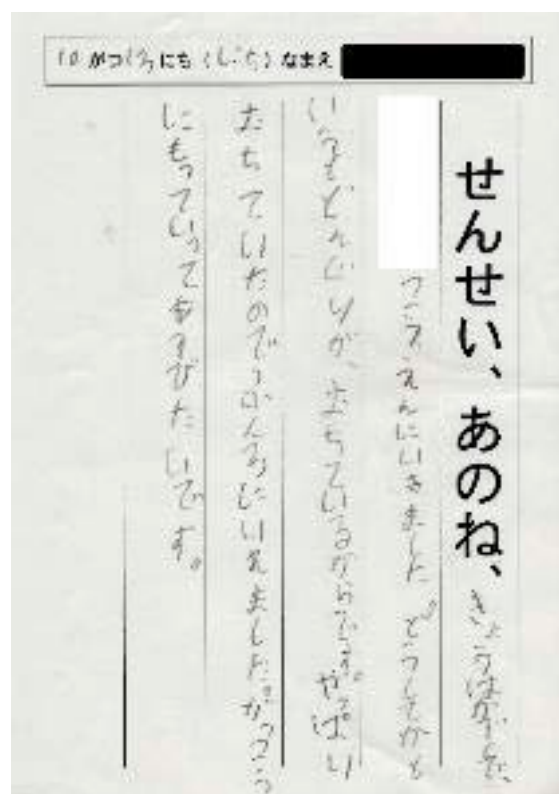 10がつ にち(しごち)なまえ
せんせい、あのね、きょうは
こうえんにいきました。どうしてかと
いうとどんぐりが、おちているからです。やっぱり
おちていたのでうれしいました。がっこう
にもっていってあそびたいです。